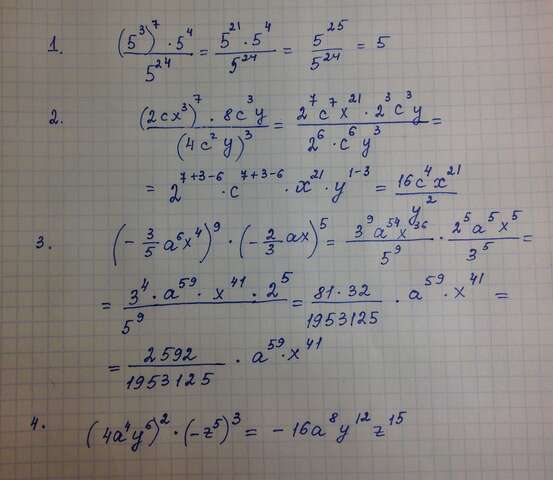 1. (5³)⁷ · 5⁴ / 5²⁴ = 5²¹ · 5⁴ / 5²⁴ = 5²⁵ / 5²⁴ = 5
2. (2cx³)⁷ · 8c³y / (4c²y)³ = 2⁷c⁷x²¹ · 2³c³y / 2⁶ · c⁶y³ =
= 2⁷⁺³⁻⁶ · c⁷⁺³⁻⁶ · x²¹ · y¹⁻³ = 16c⁴x²¹ / y²
3. (- 3/5 a⁶x⁴)⁹ · (- 2/3 ax)⁵ = 3⁹a⁵⁴x³⁶ / 5⁹ · 2⁵a⁵x⁵ / 3⁵ =
= 3⁴ · a⁵⁹ · x⁴¹ · 2⁵ / 5⁹ = 81 · 32 / 1953125 · a⁵⁹ · x⁴¹ =
= 2592 / 1953125 · a⁵⁹ · x⁴¹
4. (4a⁴y⁶)² · (-z⁵)³ = - 16a⁸y¹²z¹⁵